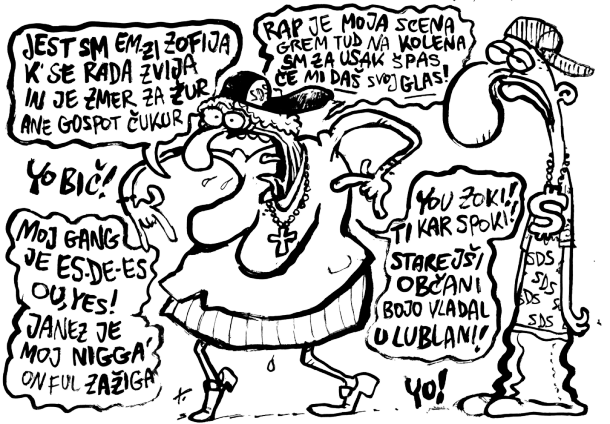 JEST SM EM-ZI ZOFIJA
K' SE RADA ZVIJA
IN JE ZMER ZA ŽUR
ANE GOSPOT ČUKUR
RAP JE MOJA SCENA
GREM TUD NA KOLENA
SM ZA USAK ŠPAS
ČE MI DAŠ SVOJ GLAS!
SDS
YO BIČ!
MOJ GANG
JE ES-DE-ES
OU, YES!
JANEZ JE
MOJ NIGGA'
ON FUL ZAŽIGA
YOU ŽOKI!
TI KAR SPOKI!
STAREJŠI
OBČANI
BOJO VLADAL
U LUBLANI!
YO!
S
SDS
SDS
SDS
SDS
SDS